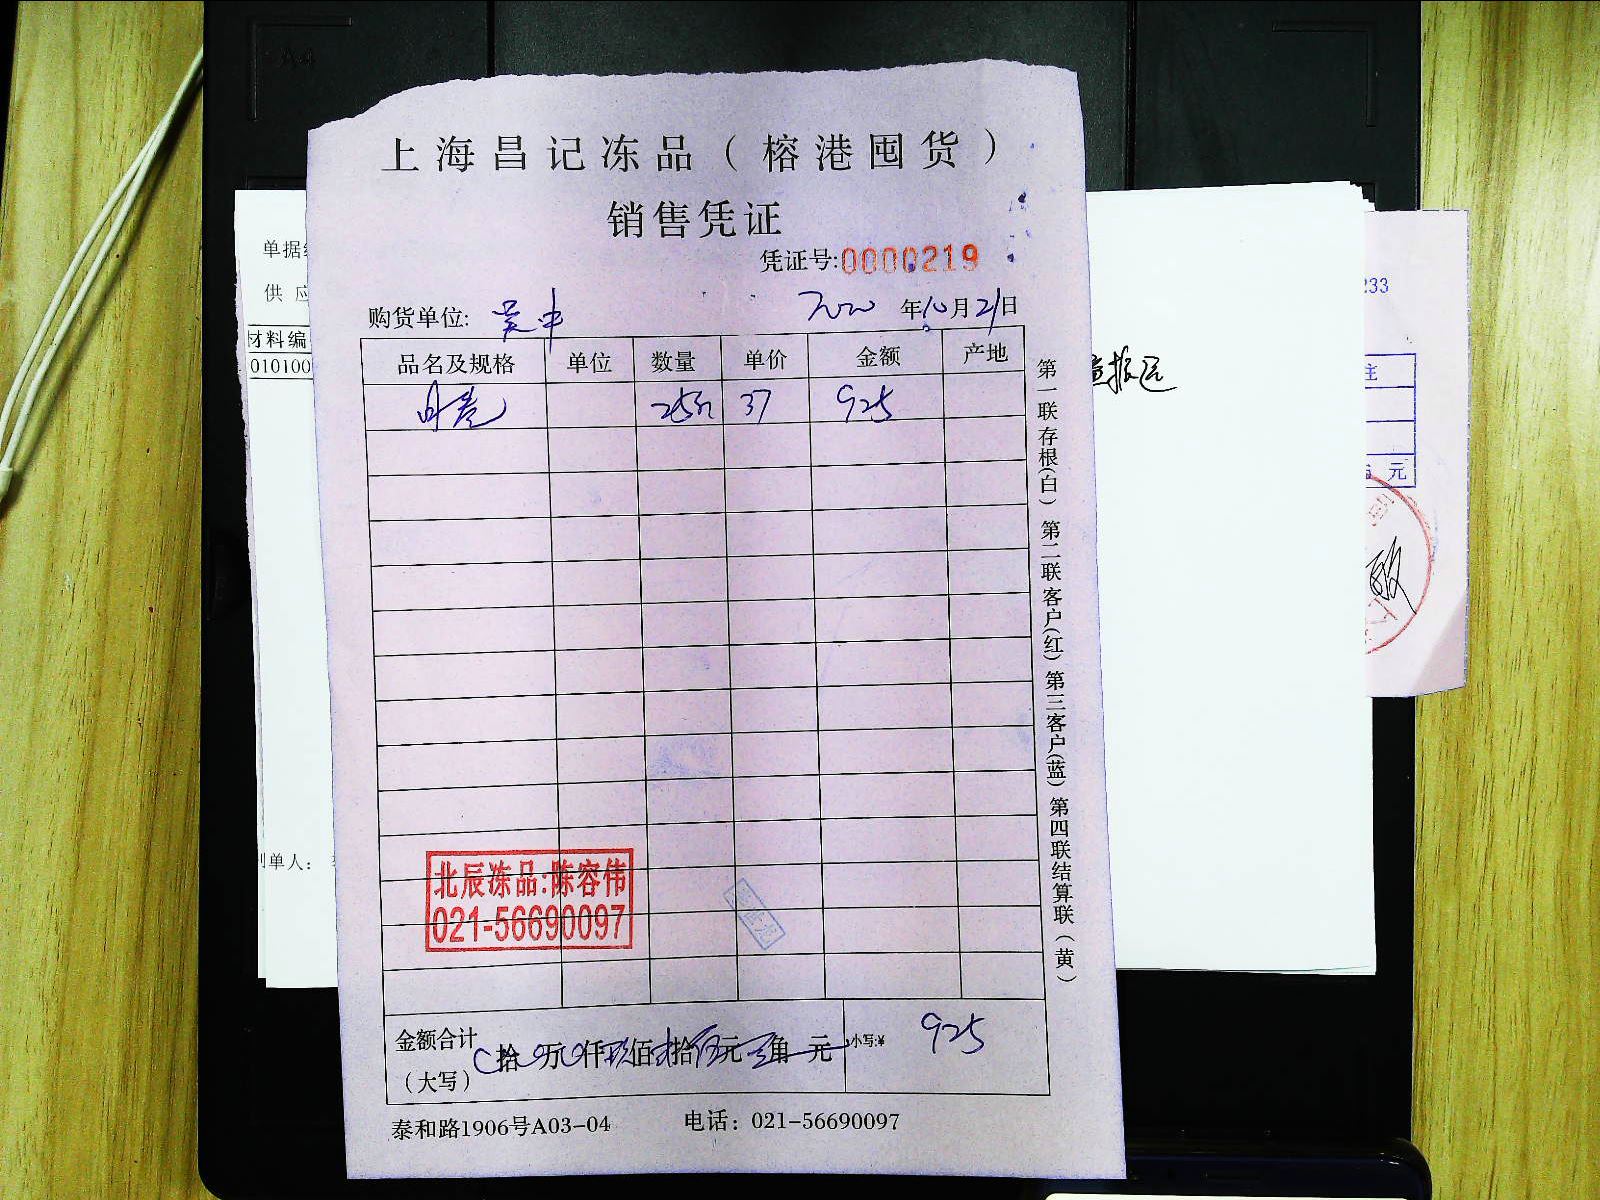 上海昌记冻品（榕港囤货）
销售凭证
凭证号:0000219
购货单位: 吴中 2020年10月21日
品名及规格 单位 数量 单价 金额 产地
25斤 37 925
第一联存根(白) 第二联客户(红) 第三客户(蓝) 第四联结算联(黄)
北辰冻品:陈容伟
021-56690097
金额合计
（大写） 拾 万 仟 玖佰 拾 伍元 角 元 小写:¥ 925
泰和路1906号A03-04 电话：021-56690097
单据
供 应
材料编
010100
制单人：
233
注
元